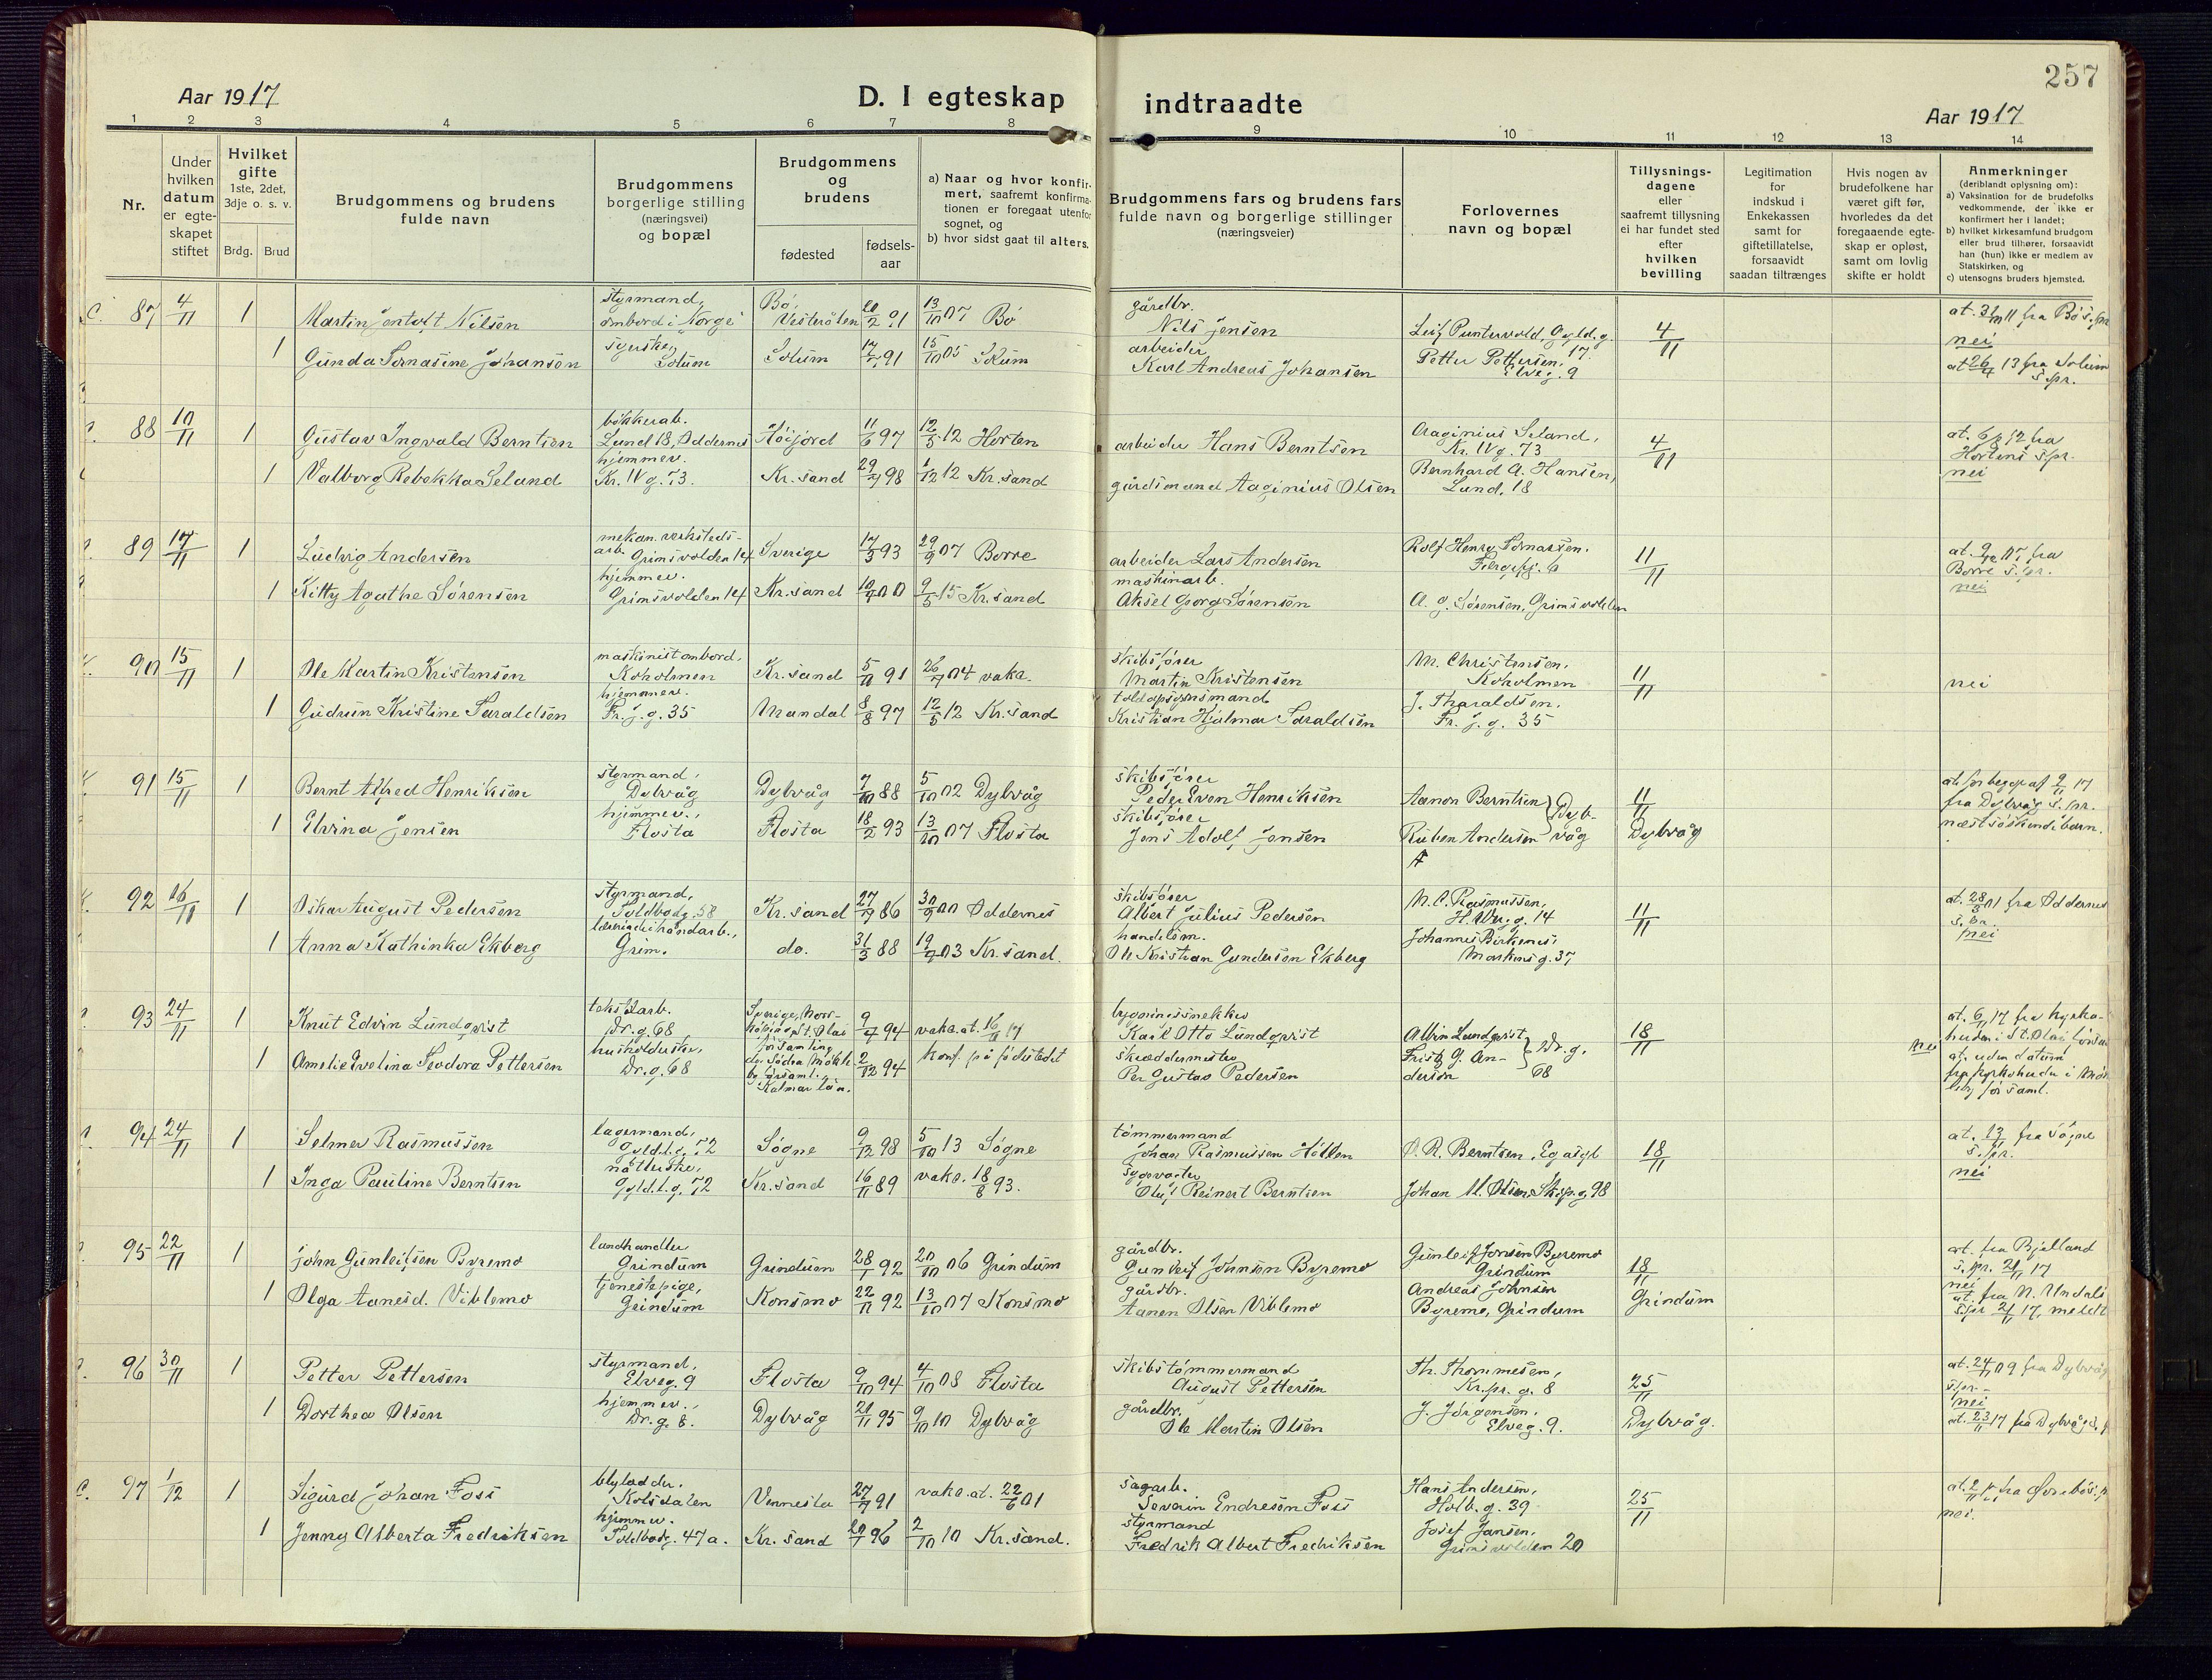 257
Aar 1917
D. I egteskap
indtraadte
Aar 1917
1 2 3 4 5 6 7 8 9 10 11 12 13 14
Nr.
Under hvilken datum er egteskapet stiftet
Hvilket gifte 1ste, 2det, 3dje o. s. v.
Brdg. Brud
Brudgommens og brudens fulde navn
Brudgommens borgerlige stilling (næringsvei) og bopæl
Brudgommens og brudens
fødested
fødsels-aar
a) Naar og hvor konfirmert, saafremt konfirmationen er foregaat utenfor sognet, og
b) hvor sidst gaat til alters.
Brudgommens fars og brudens fars fulde navn og borgerlige stillinger (næringsveier)
Forlovernes navn og bopæl
Tillysningsdagene eller saafremt tillysning ei har fundet sted efter hvilken bevilling
Legitimation for indskud i Enkekassen samt for giftetillatelse, forsaavidt saadan tiltrænges
Hvis nogen av brudefolkene har været gift før, hvorledes da det foregaaende egteskap er opløst, samt om lovlig skifte er holdt
Anmerkninger (deriblandt oplysning om):
a) Vaksination for de brudefolks vedkommende, der ikke er konfirmert her i landet;
b) hvilket kirkesamfund brudgom eller brud tilhører, forsaavidt han (hun) ikke er medlem av Statskirken, og
c) utensogns bruders hjemsted.
87 4/11 1 Martin Jentoft Nilsen styrmand, ombord i "Norge" Bø, Vesterålen 20/2 91 13/10 07 Bø gårdbr. Nils Jensen Leif Puntervold, Gyld.g. 17. 4/11
1 Gunda Tomasine Johanson syerske, Solum Solum 91 15/10 05 Solum arbeider Karl Andreas Johansen Petter Pettersen, Elveg. 9 nei
at 26/7 13 fra Solum s.pr.
88 10/11 1 Gustav Ingvald Berntsen bøkkerarb. Lund 18, Oddernes Høijord 11/6 97 12/5 12 Horten arbeider Hans Berntsen Aaginius Seland, Kr. IV g. 73 4/11 at. 6/8 12 fra Hortens s.pr.
1 Valborg Rebekka Seland hjemmev. Kr. IV g. 73. Kr.sand 98 1/12 12 Kr.sand gårdsmand Aaginius Olsen Bernhard A. Hansen, Lund, 18 nei
89 17/11 1 Ludvig Andersen mekan. verksteds-arb. Grimsvolden 14 Sverige 17/3 93 29/9 07 Borre arbeider Lars Andersen Rolf Henry 11/11 fra Borre s.pr.
1 Kitty Agathe Sørensen hjemmev. Grimsvolden 14 Kr.sand 10/7 00 9/5 15 Kr.sand maskinarb. Aksel Georg Sørensen A. G. Sørensen, Grimsvolden nei
90 15/11 1 Ole Martin Kristensen maskinist ombord, Koholmen Kr.sand 5/11 91 26/7 04 vaks. skibsfører Martin Kristensen M. Christensen, Koholmen 11/11 nei
1 Gudrun Kristine Taraldsen hjemmev. Fr. j. g. 35 Mandal 8/8 97 12/5 12 Kr.sand toldopsynsmand Kristian Hjalmar Taraldsen J. Tharaldsen, Fr. j. g. 35
91 15/11 1 Bernt Alfred Henriksen styrmand, Dybvåg Dybvåg 7/10 88 5/10 02 Dybvåg skibsfører Peder Even Henriksen Aanon Berntsen 11/11 at. for begge af 9/11 17 fra Dybvåg s.pr. næstsøskendebarn.
1 Elvina Jensen hjemmev., Flosta Flosta 18/2 93 13/10 07 Flosta skibsfører Jens Adolf Jensen Ruben Andersen Dybvåg Dybvåg
92 16/11 1 Oskar August Pedersen styrmand, Toldbodg. 58 Kr.sand 27/7 86 30/9 00 Oddernes skibsfører Albert Julius Pedersen M. C. Rasmussen, H. Wer. g. 14 11/11 at. 28/3 01 fra Oddernes s.pr.
1 Anna Kathinka Ekberg lærerinde i håndarb., Grim. do. 31/3 88 19/4 03 Kr.sand. handelsm. Ole Kristian Gundersen Ekberg Johannes Birkenes, Markens g. 37 nei
93 24/11 1 Knut Edvin Lundqvist tekstilarb. Dr. g. 68 Sverige, Norrköpings St. Olai församling 9/7 94 vaks. at. 16/11 17 bygningssnekker Karl Otto Lundqvist Albin Lundqvist 18/11 at. 6/11 17 fra kyrkoherden i St. Olai församl.
1 Amelie Evelina Teodora Pettersen husholderske, Dr. g. 68 do. Södra Möckleby församl. Kalmar län. 2/12 94 konf. på fødestedet skræddermester Per Gustav Pedersen Fritz G. Anderson Dr. g. 68 nei at. uden datum fra kyrkoherden i Möckleby församl.
94 24/11 1 Selmer Rasmussen lagermand, Gyld.l.g. 72 Søgne 9/12 98 5/10 13 Søgne tømmermand Johan Rasmussen Holten O. R. Berntsen, 18/11 at. 13/11 fra Søgne s.pr.
1 Inga Pauline Berntsen nåtterske, Gyld.l.g. 72 Kr.sand 16/11 89 vaks. 18/8 93. Oluf Reinert Berntsen Johan M. Olsen, 98 nei
95 22/11 1 John Gunleifsen Byremo landhandler Grindum Grindum 28/1 92 20/10 06 Grindum gårdbr. Gunleif Johnsen Byremo Gunleif Jonsen Byremo Grindum 18/11 at. fra Bjelland s.pr. 21/11 17 nei
1 Olga Aanesd. Viblemo tjenestepige, Grindum Konsmo 22/11 92 13/10 07 Konsmo gårdbr. Aanen Olsen Viblemo Andreas Johnsen Byremo, Grindum Grindum at. fra N. Undals s.pr 21/11 17, meldt
96 30/11 1 Petter Pettersen styrmand, Elveg. 9 Flosta 9/10 94 4/10 08 Flosta skibstømmermand August Pettersen Th. Thommesen, Kr.pr. g. 8 25/11 at. 24/ 09 fra Dybvåg s.pr. nei
1 Dorthea Olsen hjemmev., Dr. g. 8. Dybvåg 21/11 95 9/10 10 Dybvåg gårdbr. Ole Martin Olsen J. Jørgensen, Elveg. 9. Dybvåg. at. 23/11 17 fra Dybvåg s.p
97 1/12 1 Sigurd Johan Foss blyladder. Kolsdalen Vennesla 27/7 91 vaks.at. 22/6 01 sagarb. Severin Endresen Foss Hans Andersen, Holb. g. 39 25/11
1 Jenny Alberta Fredriksen hjemmev. Toldbodg. 47a. Kr.sand 20/1 96 2/10 10 Kr.sand. styrmand Fredrik Albert Fredriksen Josef Jansen, Grimsvolden 20 nei.